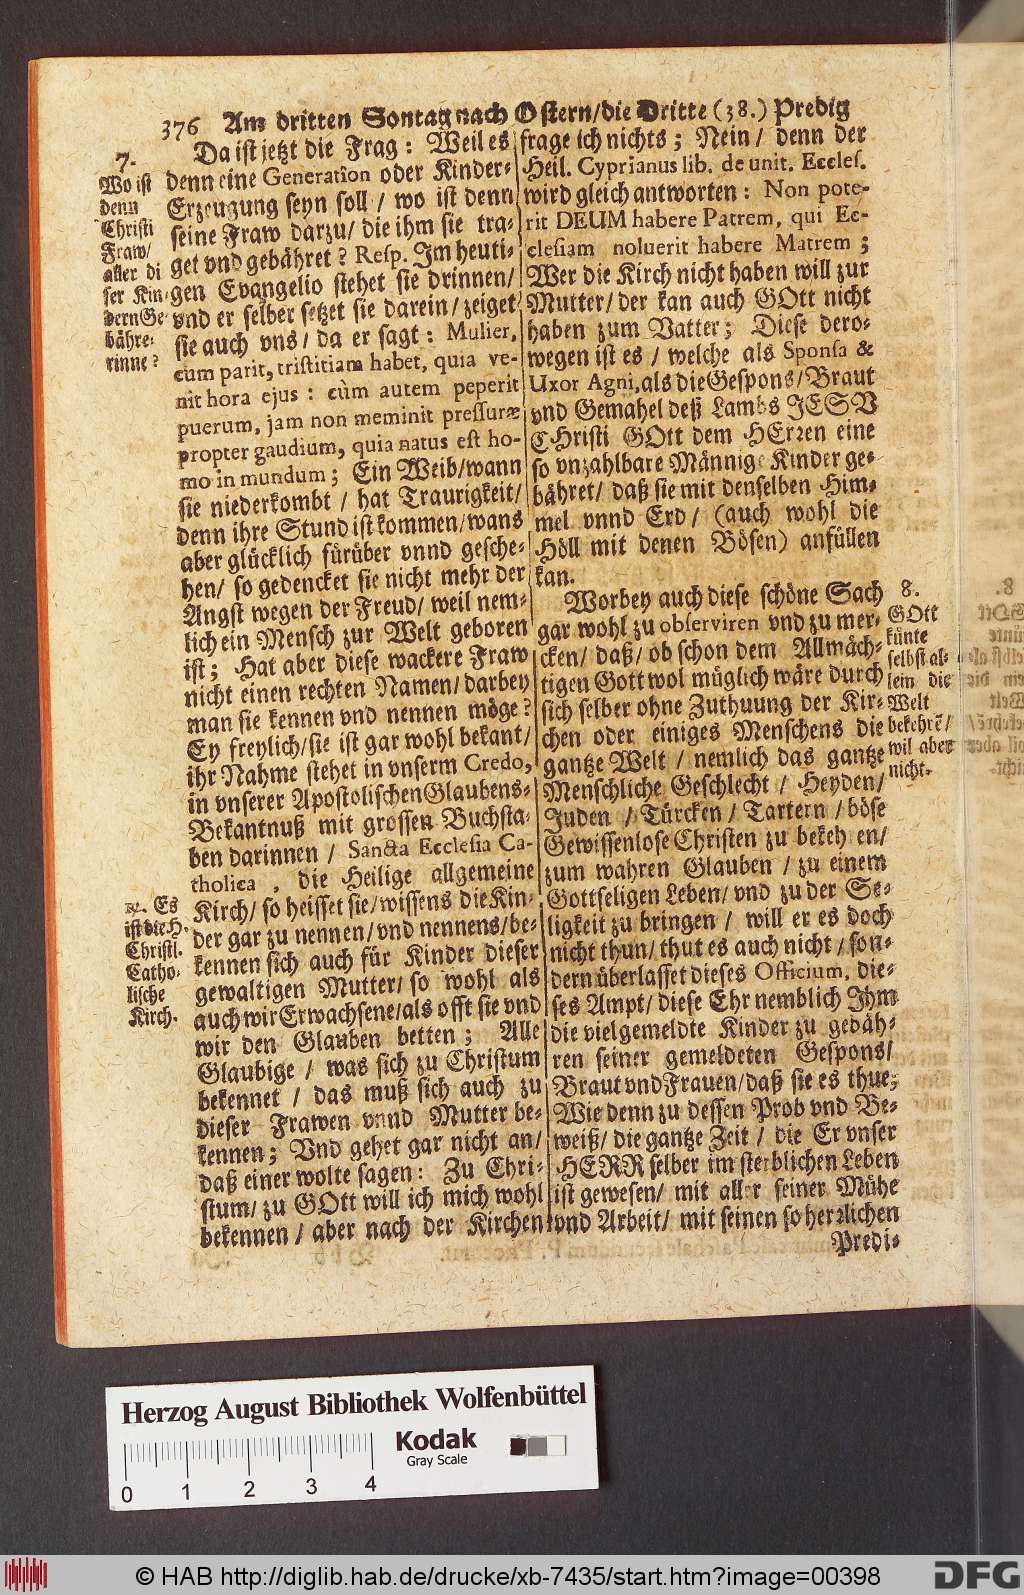 376 Am dritten Sontag nach Ostern/die Dritte (38.) Predig
7.
Wo ist
denn
Christi
Fraw/
aller di
ser Kin-
dern Ge
bähre-
rinne?
Da ist jetzt die Frag: Weil es
denn eine Generation oder Kinder-
Erzeugung seyn soll / wo ist denn
seine Fraw darzu/ die ihm sie tra-
get vnd gebähret? Resp. Im heuti-
gen Evangelio stehet sie drinnen/
vnd er selber setzet sie darein/ zeiget
sie auch vns/ da er sagt: Mulier,
cum parit, tristitiam habet, quia ve-
nit hora ejus: cùm autem peperit
puerum, jam non meminit pressuræ
propter gaudium, quia natus est ho-
mo in mundum; Ein Weib/wann
sie niederkombt / hat Traurigkeit/
denn ihre Stund ist kommen/wans
aber glücklich fürüber vnnd gesche-
hen/ so gedencket sie nicht mehr der
Angst wegen der Freud/ weil nem-
lich ein Mensch zur Welt geboren
ist; Hat aber diese wackere Fraw
nicht einen rechten Namen/ darbey
man sie kennen vnd nennen möge?
Ey freylich/sie ist gar wohl bekant/
ihr Nahme stehet in vnserm Credo,
in vnserer Apostolischen Glaubens-
Bekantnuß mit grossen Buchsta-
ben darinnen / Sancta Ecclesia Ca-
tholica, die Heilige allgemeine
Kirch/ so heisset sie/ wissens die Kin-
der gar zu nennen/ vnd nennens/ be-
kennen sich auch für Kinder dieser
gewaltigen Mutter/ so wohl als
auch wir Erwachsene/als offt sie vnd
wir den Glauben betten; Alle
Glaubige / was sich zu Christum
bekennet / das muß sich auch zu
dieser Frawen vnnd Mutter be-
kennen; Vnd gehet gar nicht an/
daß einer wolte sagen: Zu Chri-
stum/ zu GOtt will ich mich wohl
bekennen / aber nach der Kirchen
Es
ist die H.
Christl.
Catho-
lische
Kirch.
frage ich nichts; Nein/ denn der
Heil. Cyprianus lib. de unit. Eccles.
wird gleich antworten: Non pote-
rit DEUM habere Patrem, qui Ec-
clesiam noluerit habere Matrem;
Wer die Kirch nicht haben will zur
Mutter/ der kan auch GOtt nicht
haben zum Vatter; Diese dero-
wegen ist es / welche als Sponsa &
Uxor Agni, als die Gespons/ Braut
vnd Gemahel deß Lambs JESV
CHristi GOtt dem HErren eine
so vnzahlbare Männige Kinder ge-
bähret/ daß sie mit denselben Him-
mel vnnd Erd/ (auch wohl die
Höll mit denen Bösen) anfüllen
kan.
Worbey auch diese schöne Sach
gar wohl zu observiren vnd zu mer-
cken/ daß/ ob schon dem Allmäch-
tigen Gott wol müglich wäre durch
sich selber ohne Zuthuung der Kir-
chen oder einiges Menschens die
gantze Welt / nemlich das gantze
Menschliche Geschlecht / Heyden/
Juden / Türcken / Tartern / böse
Gewissenlose Christen zu bekehren/
zum wahren Glauben / zu einem
Gottseligen Leben/ vnd zu der Se-
ligkeit zu bringen / will er es doch
nicht thun/ thut es auch nicht / son-
dern überlasset dieses Officium, die-
ses Ampt/ diese Ehr nemblich Ihm
die vielgemeldte Kinder zu gebäh-
ren seiner gemeldeten Gespons/
Braut vnd Frauen/ daß sie es thue;
Wie denn zu dessen Prob vnd Be-
weiß/ die gantze Zeit / die Er vnser
HERR selber im sterblichen Leben
ist gewesen/ mit aller seiner Mühe
vnd Arbeit/ mit seinen so herzlichen
Predi-
8.
GOtt
künte
selbst al-
lein die
Welt
bekehrē/
wil aber
nicht.
Herzog August Bibliothek Wolfenbüttel
Kodak
Gray Scale
0 1 2 3 4
© HAB http://diglib.hab.de/drucke/xb-7435/start.htm?image=00398
DFG